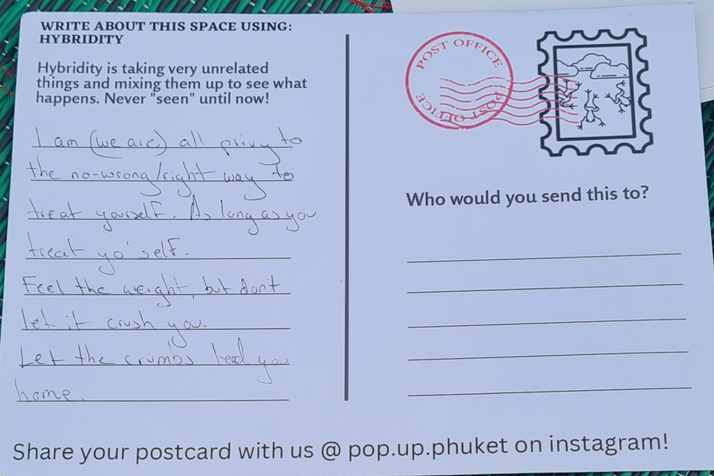 WRITE ABOUT THIS SPACE USING:
HYBRIDITY
Hybridity is taking very unrelated
things and mixing them up to see what
happens. Never "seen" until now!
I am (we are) all privy to
the no-wrong/right way to
treat yourself. As long as you
treat yo' self.
Feel the weight, but don't
let it crush you.
Let the crumbs lead you
home.
POST OFFICE
POST OFFICE
Who would you send this to?
Share your postcard with us @ pop.up.phuket on instagram!